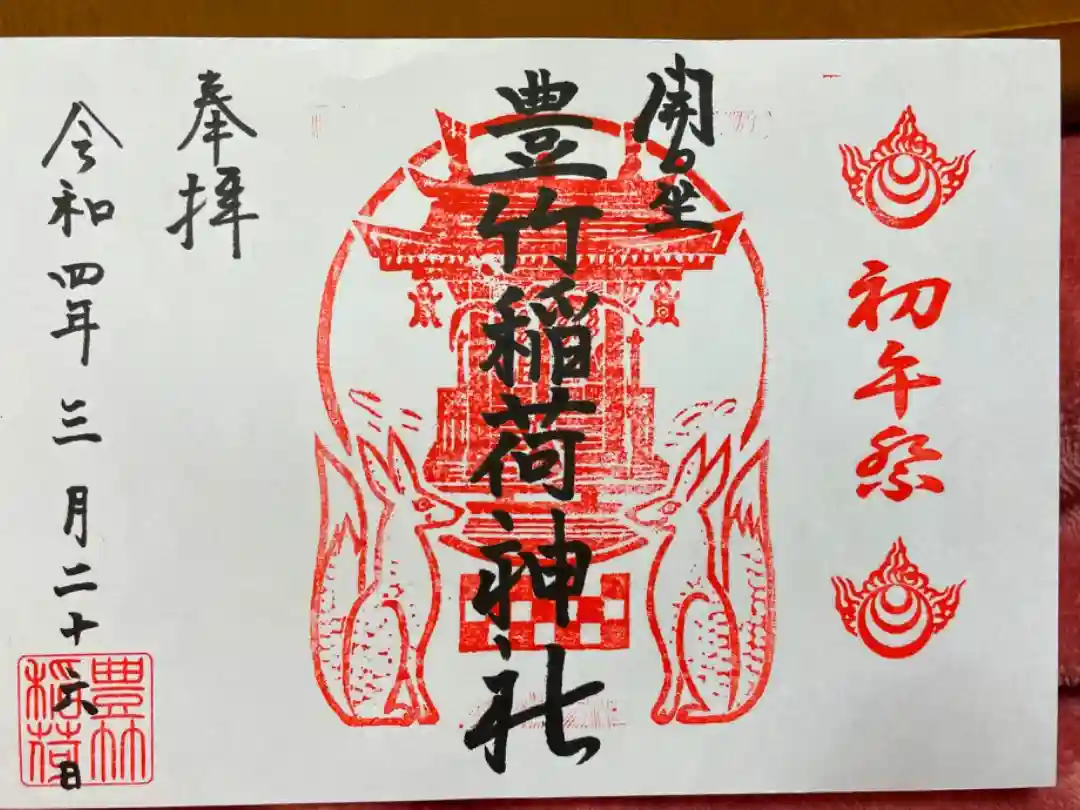 初午祭
豊竹稲荷神社
奉拝
令和四年三月二十六日
豊竹
稲荷